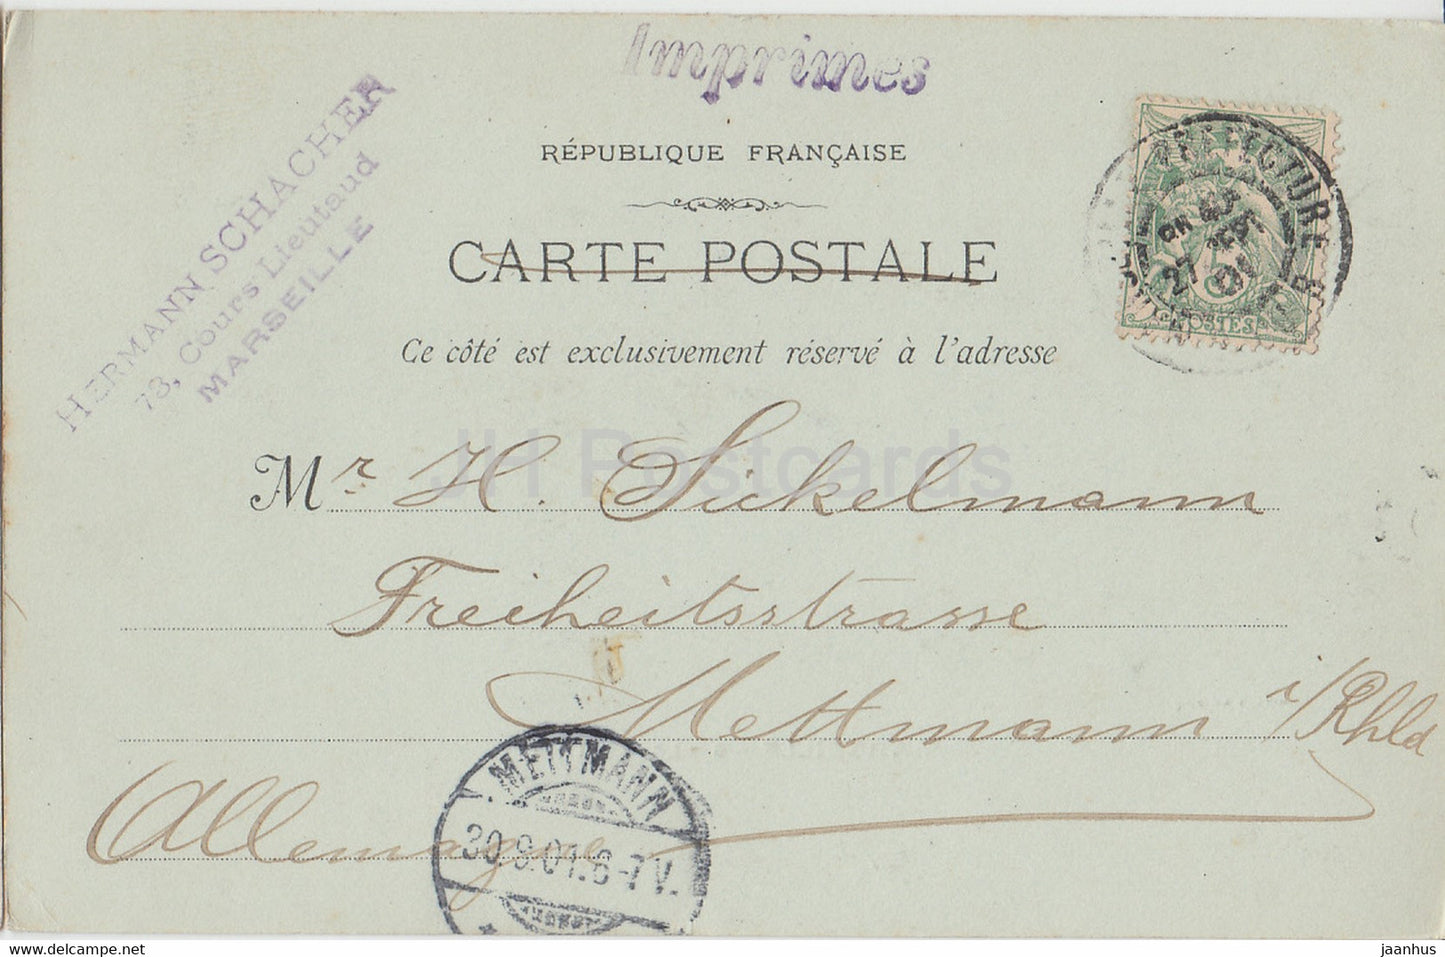 Imprimes
HERMANN SCHACHER
73, Cours Lieutaud
MARSEILLE
RÉPUBLIQUE FRANÇAISE
CARTE POSTALE
Ce côté est exclusivement réservé à l'adresse
27 SEPT 01
POSTES
JH Postcards
Mr H. Sickelmann
Freiheitsstrasse
Mettmann i/Rhld
Allemagne
METTMANN
30.9.01.6-7V.
www.delcampe.net
jaanhus